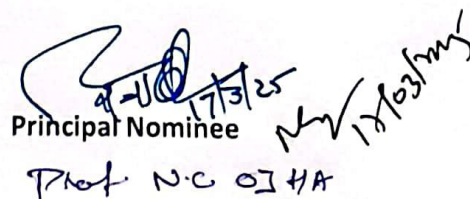 17/3/25
17/03/2025
Principal Nominee
Prof N.C OJHA